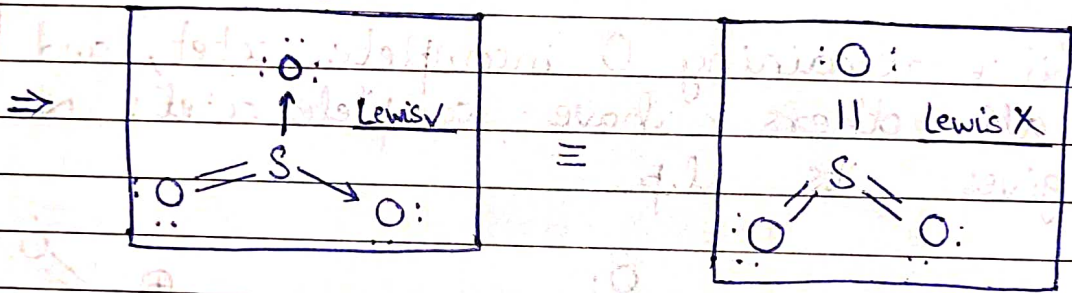 ⇒
:Ö:
↑
Lewis✓
:O=S→O:
≡
:O:
||
Lewis X
S
:O O: